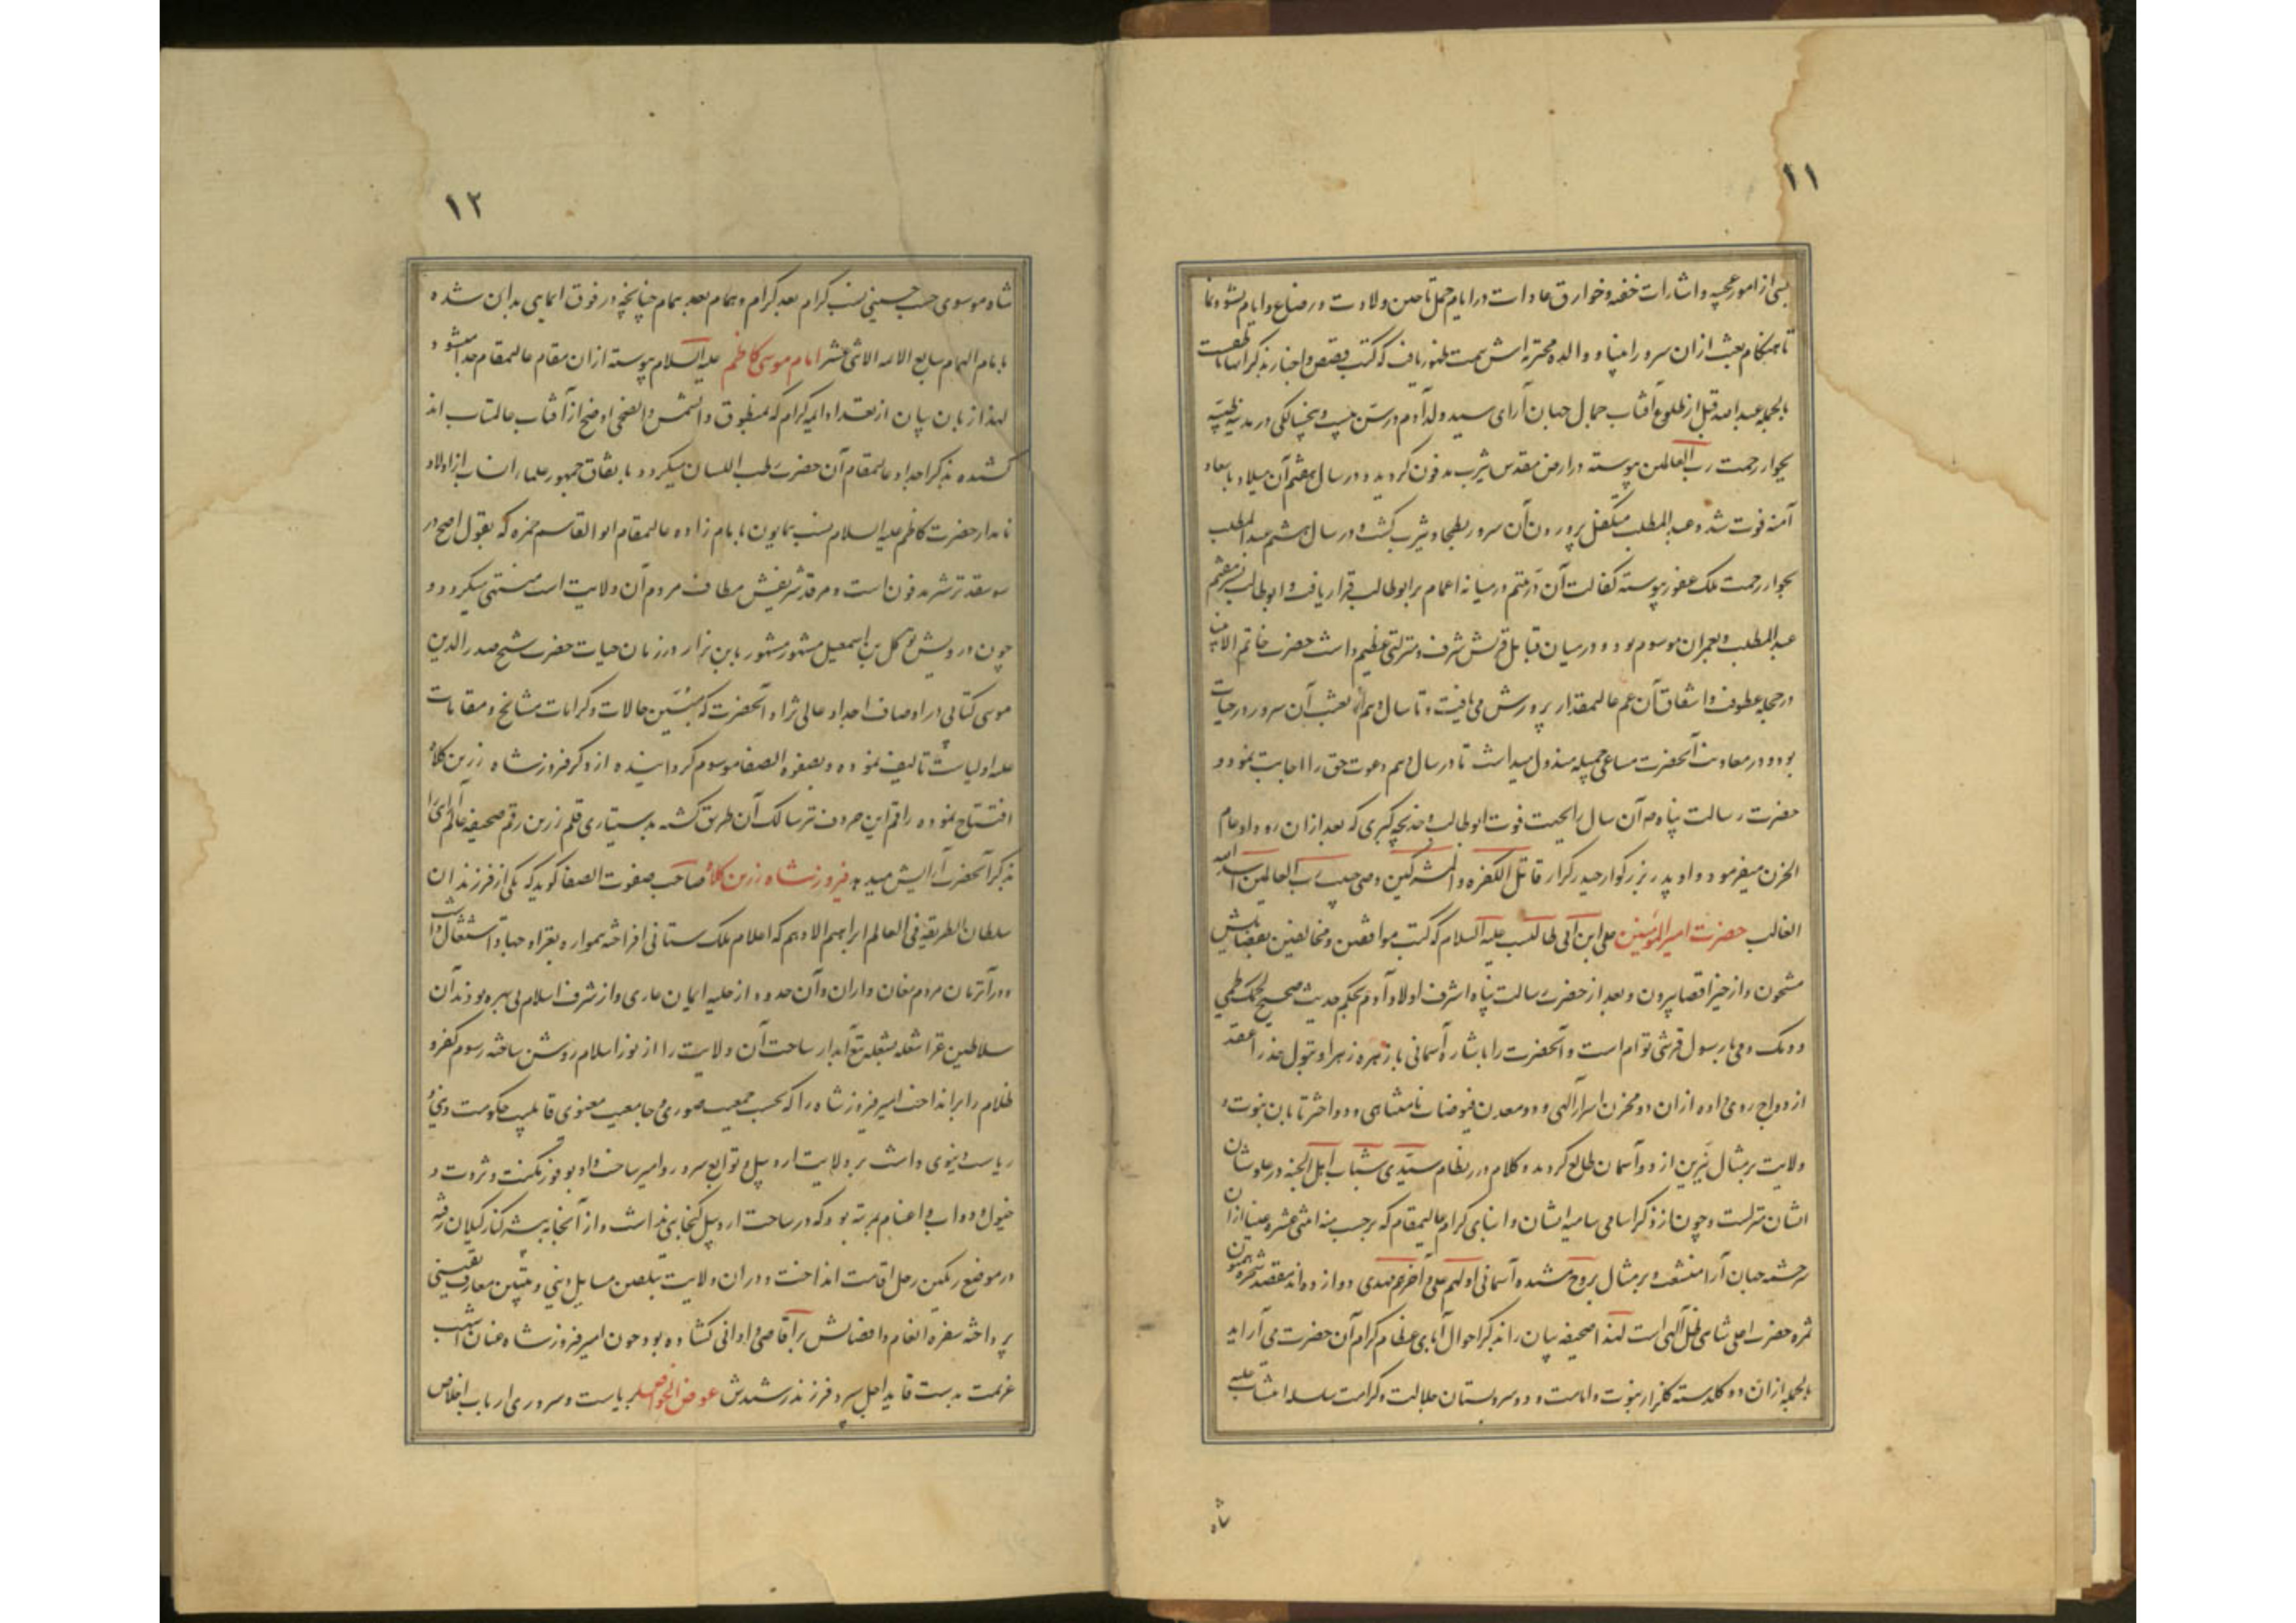 ۱۱
بسی از امور عجیبه و اشارات خفیه و خوارق عادات در ایام حمل تا حین ولادت و رضاع و ایام نشو و نما
تا هنگام بعثت ازان سرور انبیا و والده محترمه اش سمت ظهور یافت که کتب قصص و اخبار بذکر انها ناطقست
بالجمله عبد الله قبل از طلوع آفتاب جمال جهان آرای سید ولد آدم در سن بیست و پنجسالگی در مدینه طیبه
بجوار رحمت رب العالمین پیوسته در ارض مقدس یثرب مدفون گردید و در سال هفتم آن میلاد با سعاد
آمنه فوت شد و عبد المطلب متکفل پروردن آن سرور بطحا و یثرب گشت و در سال هشتم عبد المطلب
بجوار رحمت ملک غفور پیوسته کفالت آن در یتیم در میانه اعمام بر ابوطالب قرار یافت و ابوطالب
عبد المطلب و بعمران موسوم بود و در میان قبایل قریش شرف و منزلتی عظیم داشت حضرت خاتم الانبیا
در حجر عطوفت و اشفاق آن عم عالیمقدار پرورش می یافت و تا سال دهم از بعثت آن سرور در حیات
بود و در معاونت آنحضرت مساعی جمیله مبذول میداشت تا در سال دهم دعوت حق را اجابت نمود و
حضرت رسالت پناه آن سال را بجهت فوت ابوطالب و خدیجه کبری که بعد ازان رو داد عام
الحزن میفرمود و او پدر بزرگوار حیدر کرار قاتل الکفره و المشرکین وصی حبیب رب العالمین اسد الله
الغالب حضرت امیر المؤمنین علی ابن ابی طالب علیه السلام که کتب موافقین و مخالفین بفضایلش
مشحون و از حیز اقصا بیرون و بعد از حضرت رسالت پناه اشرف اولاد آدم بحکم حدیث صحیح لحمک لحمی
و دمک دمی با رسول قرشی توأم است و آنحضرت را باشاره آسمانی با زهره زهرا و بتول عذرا عقد
ازدواج روی داده ازان دو مخزن اسرار الهی و دو معدن فیوضات نامتناهی و دو اختر تابان نبوت و
ولایت بر مثال نیرین از دو آسمان طالع گردید و کلام درر نظام سیدی شباب اهل الجنة در علو شان
ایشان منزلست و چون از ذکر اسامی سامیه ایشان و ابنای کرام عالیمقام که برحسب منه اثنی عشره عینا ازان
سرچشمه جهان آرا منشعب و بر مثال بروج مشیده آسمانی اولهم علی و آخرهم مهدی دوازده اند مقصد
ثمره حضرت اعلی شاهی ظل آلهی است لهذا صحیفه بیان را بذکر احوال آبای عظام کرام آن حضرت می آراید
بالجمله ازان دو گلدسته گلزار نبوت و امامت و دو سرو بستان جلالت و کرامت سلسله انتساب علیه
شاه
۱۲
شاه موسوی حسب حسینی نسب کرام بعد کرام و همام بعد همام چنانچه در فوق ایمایی بدان شده
بامام الهمام سابع الائمه الاثنی عشر امام موسی کاظم علیه السلام پیوسته ازان مقام عالیمقام جدا میشود و
لهذا زبان بیان از تعداد ایمه کرام که بمنطوق و الشمس و الضحی اوضح از آفتاب عالمتاب اند
کشیده بذکر اجداد عالیمقام آن حضرت رطب اللسان میگردد و باتفاق جمهور علما انساب از اولاد
نامدار حضرت کاظم علیه السلام نسب همایون بامام زاده عالیمقام ابو القاسم حمزه که بقول اصح در
مدفون است و مرقد شریفش مطاف مردم آن ولایت است منتهی میگردد و
چون درویش توکل بن اسمعیل مشهور بابن بزاز در زمان حیات حضرت شیخ صدر الدین
موسی کتابی در اوصاف اجداد عالی نژاد آنحضرت که مبین حالات و کرامات مشایخ و مقامات
علیه اولیاست تالیف نموده و بصفوة الصفا موسوم گردانیده از ذکر فیروز شاه زرین کلاه
افتتاح نموده راقم این حروف نیز سالک آن طریق گشته بدستیاری قلم زرین رقم صحیفه عالم آرای را
بذکر آنحضرت آرایش میدهد فیروز شاه زرین کلاه صاحب صفوت الصفا گوید که یکی از فرزندان
سلطان الطریقة فی العالم ابراهیم الادهم که اعلام ملک ستانی افراخته همواره بغزا و جهاد اشتغال داشت
و در آنزمان مردم مغان و اران و آن حدود از حلیه ایمان عاری و از شرف اسلام بی بهره بودند آن
سلاطین غزا شغله بشعله تیغ آبدار ساحت آن ولایت را از نور اسلام روشن ساخته رسوم کفر و
ظلام را برانداخت امیر فیروز شاه را که بحسب جمعیت صوری و جامعیت معنوی قابلیت حکومت دینی و
ریاست دنیوی داشت بر ولایت اردبیل و توابع سرور و امیر ساخت و او بوفور مکنت و ثروت و
خیول و دواب و اغنام بمرتبه بود که در ساحت اردبیل گنجایی نداشت و از آنجا به بیشه کنار گیلان رفته
در موضع رنگین رحل اقامت انداخت و دران ولایت بتلقین مسایل دینی و تبیین معارف یقینی
پرداخته سفره انعام و افضالش بر اقاصی و ادانی کشاده بود چون امیر فیروز شاه عنان اشهب
عزیمت بدست قاید اجل سپرد فرزند رشیدش عوض الخواص بریاست و سروری ارباب اخلاص